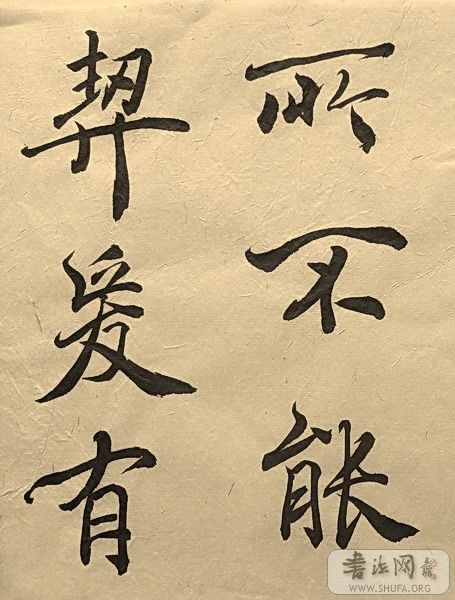 所不能
契爰有
書法网
WWW.SHUFA.ORG